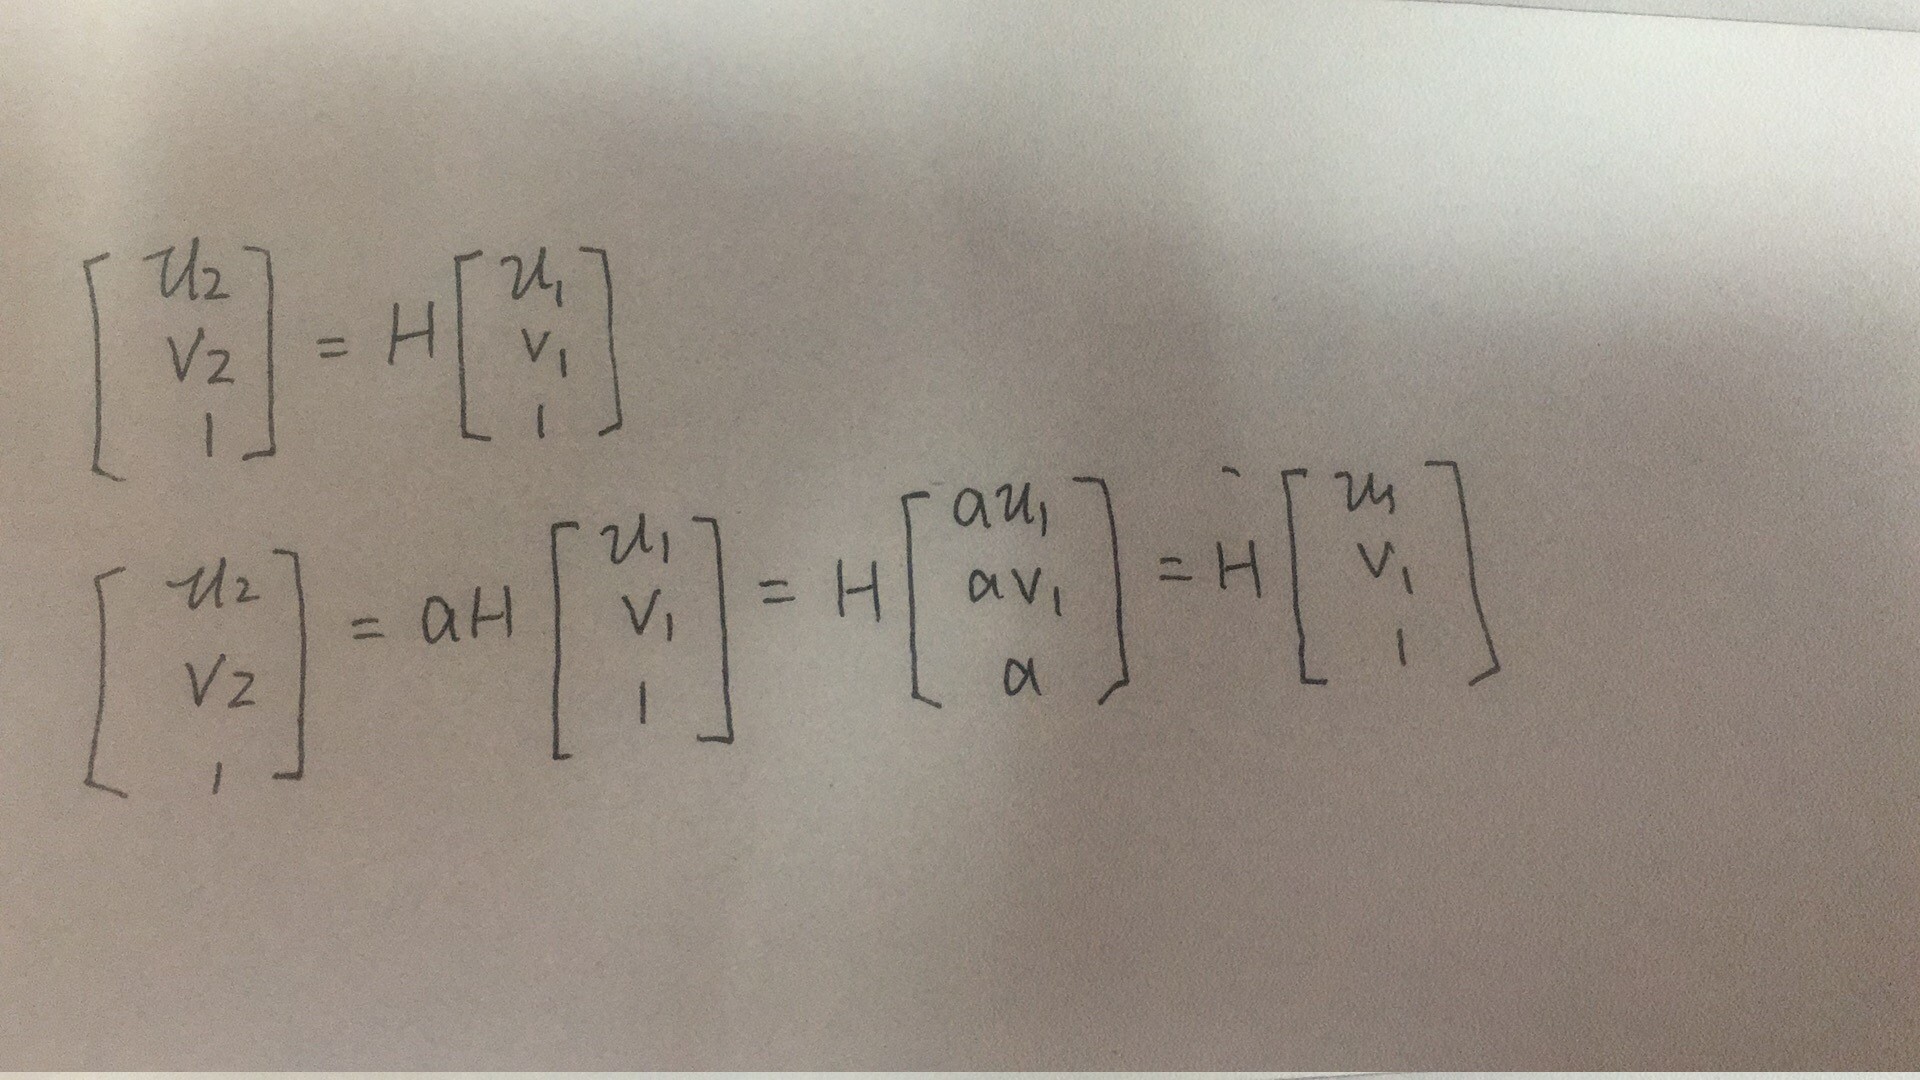 [u2 v2 1] = H [u1 v1 1]
[u2 v2 1] = aH [u1 v1 1] = H [au1 av1 a] = H [u1 v1 1]